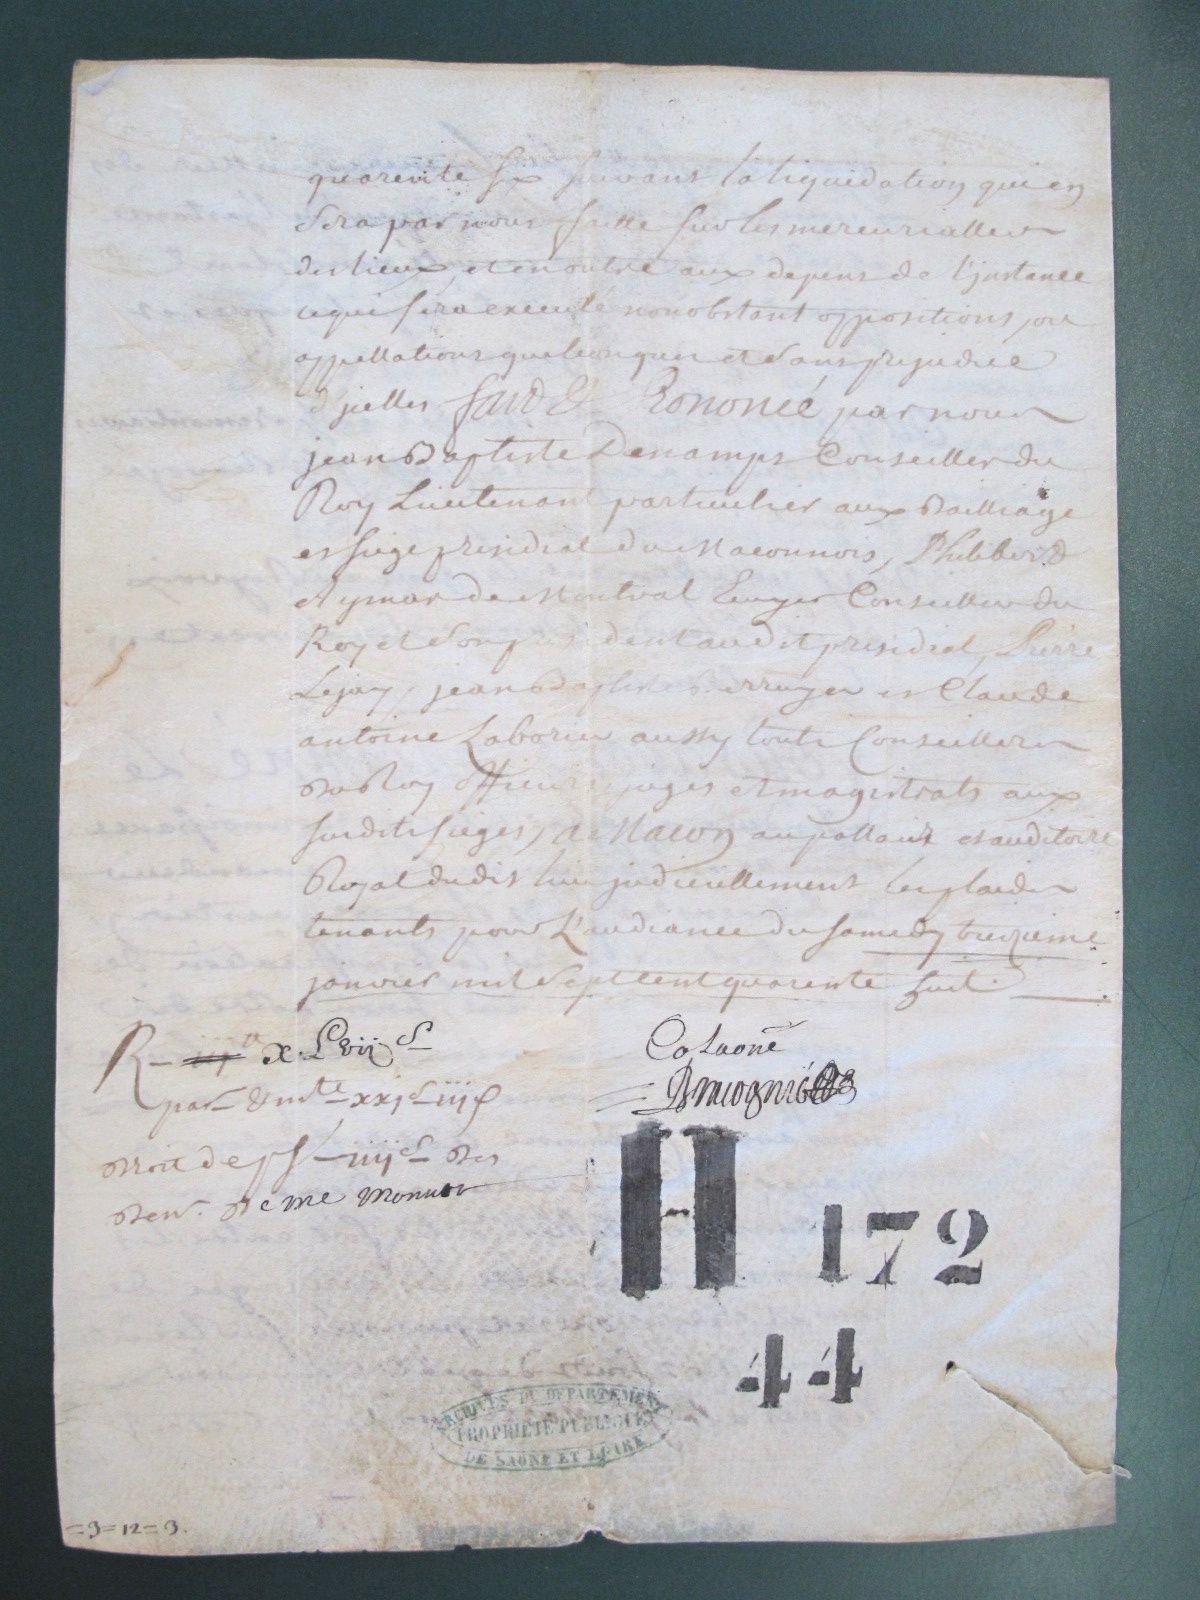 quarente six suivant la liquidation qui en
sera par nous faitte sur les mercurialles
des lieux, et en outre aux depens de l'jnstance
ce qui sera executé nonobstant oppositions, ou
appellations quelconques et sans prejudice
d'jcelles fait & Prononcé par nous
jean Baptiste Denamps Conseiller du
Roy Lieutenant particulier aux Bailliage
et siege presidial du Maconnois, Philibert
Aymar de Montval Ecuyer Conseiller du
Roy et son president audit presidial, Pierre
Lejay, jean Baptiste Berruyer et Claude
antoine Laborier aussy touts Conseillers
du Roy officiers juges et magistrats aux
susdits sieges, de Macon au pallais et auditoire
Royal dudit lieu judiciellement les plaids
tenants pour L'audiance du samedy treizieme
janvier mil sept cent quarente huit.
R x Lvii s
par xxjs iiijd
droit de iiijs des
den. de me monnor
Collaoné
H 172
44
ARCHIVES DU DEPARTEMENT
PROPRIETE PUBLIQUE
DE SAONE ET LOIRE
=3=12=3.